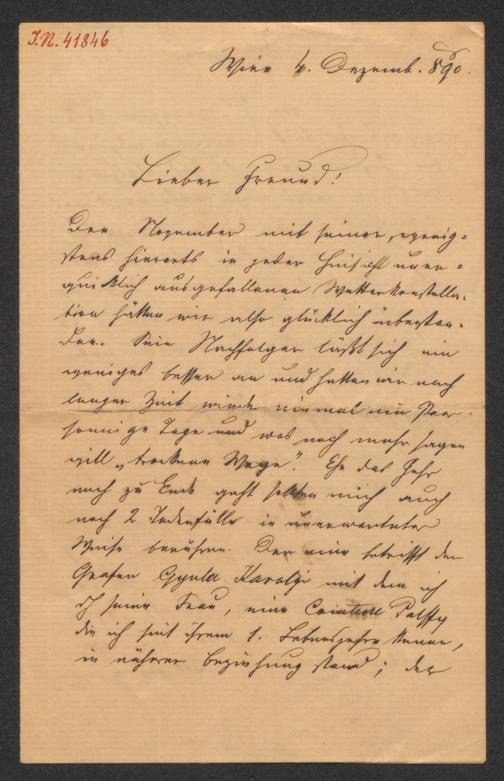 I.N. 41846
Wien 4. Dezemb. 890.
Lieber Freund!
Der November mit seiner, wenig-
stens hierorts in jeder Hinsicht uner-
quicklich ausgefallenen Wetterkonstella-
tion hätten wir also glücklich überstan-
den. Sein Nachfolger läßt sich ein
weniges besser an und hatten wir nach
langer Zeit wieder einmal ein Paar
sonnige Tage und was noch mehr sagen
will „trockene Wege". Ehe das Jahr
noch zu Ende geht sollten mich auch
noch 2 Todesfälle in unerwarteter
Weise berühren. Der eine betrifft den
Grafen Gyula Karolyi mit dem ich
durch seine Frau, eine Comtesse Palffy
die ich seit ihrem 1. Lebensjahre kenne,
in näherer Beziehung stand; der